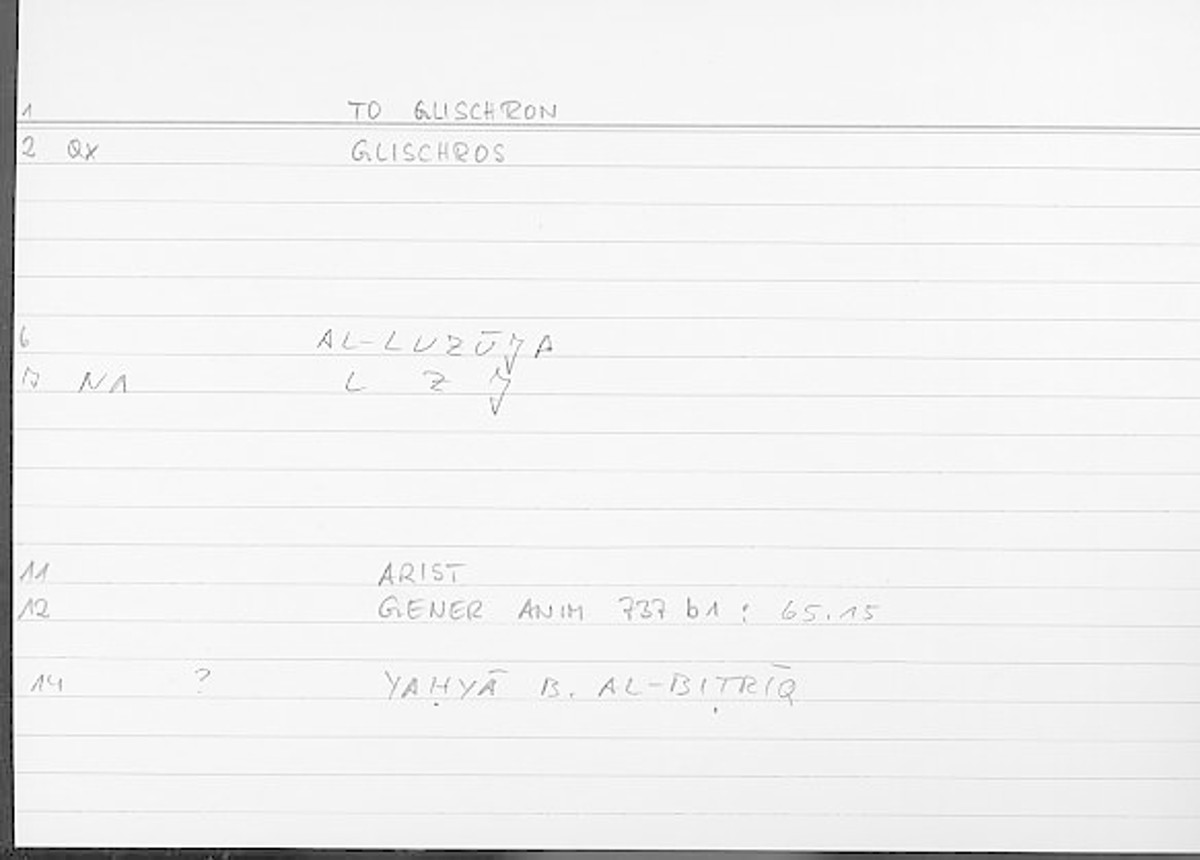 1 TO GLISCHRON
2 QX GLISCHROS
6 AL-LUZŪJA
17 NA L Z J
11 ARIST
12 GENER ANIM 737 b1 : 65.15
14 ? YAḤYĀ B. AL-BIṬRĪQ